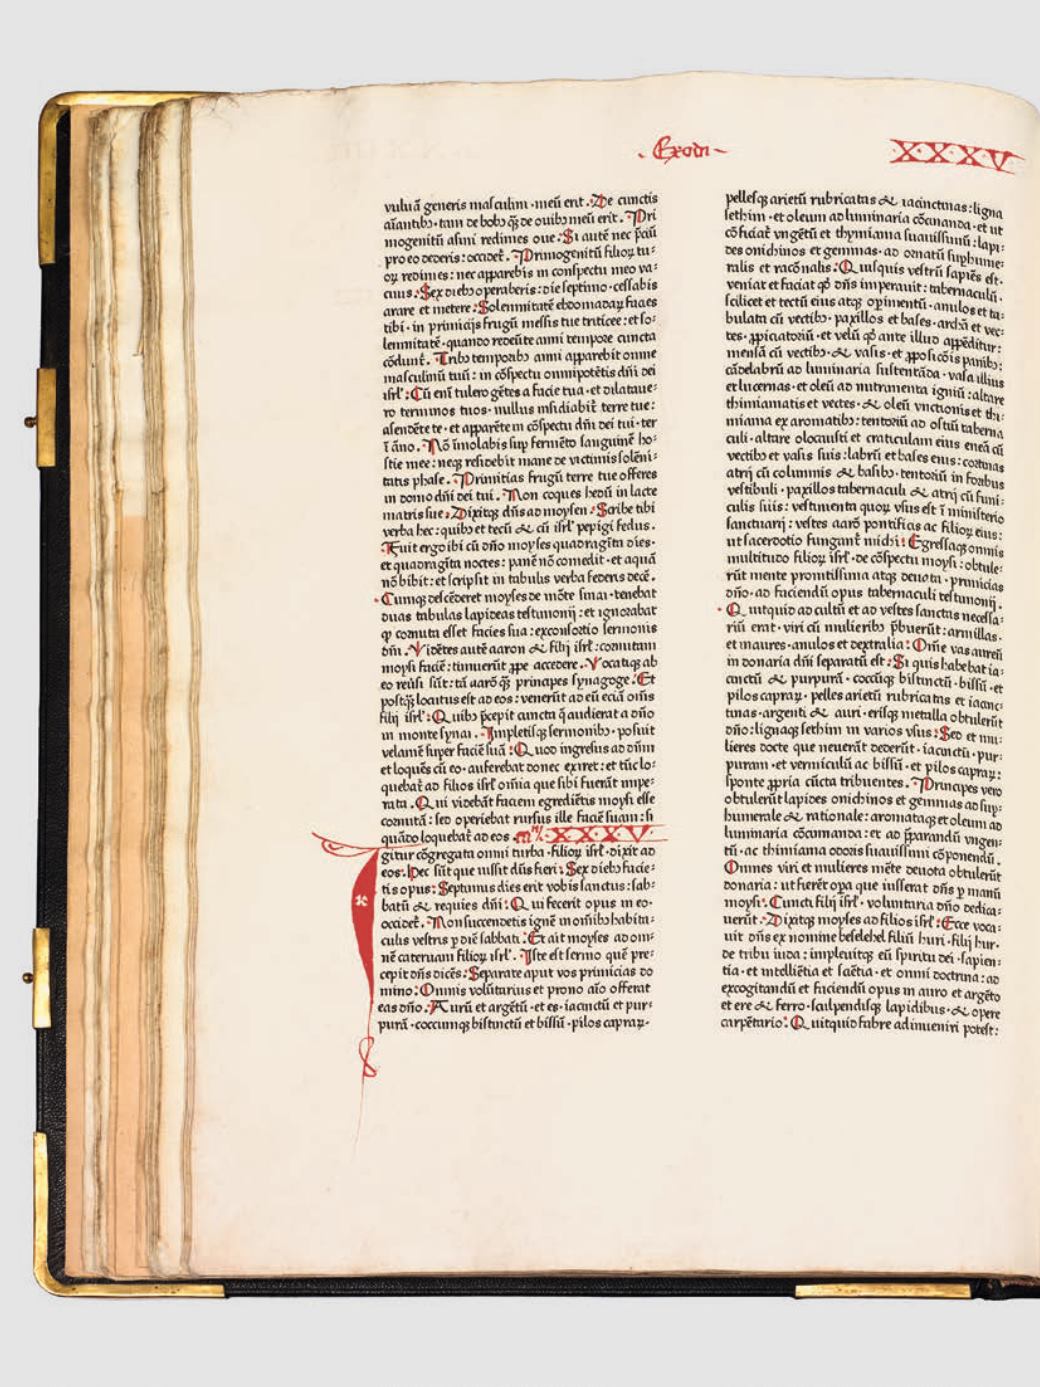 ·Exodi·
XXXV
vuluā generis masculini·meū erit.·De cunctis
aīantibꝫ·tam de bobꝫ qꝫ̄ de ouibꝫ meū erit.·Pri
mogenitū asini redimes oue:Si autē nec p̄ciū
pro eo dederis:occidet̄.·Primogenitū filioꝝ tu⸗
oꝝ redimes:nec apparebis in conspectu meo va⸗
cuus:Sex diebꝫ operaberis:die septimo·cessabis
arare et metere:Solemnitatē ebdomadaꝝ facies
tibi·in primicijs frugū messis tue triticee:et so⸗
lemnitatē·quando redeūte anni tempore cuncta
cōdunt̄.·Tribꝫ temporibꝫ anni apparebit omne
masculinū tuū:in cōspectu omnipotētis dn̄i dei
isrl̄:Cū enī tulero gētes a facie tua·et dilataue⸗
ro terminos tuos·nullus insidiabit̄ terre tue:
ascendēte te·et apparēte in cōspectu dn̄i dei tui·ter
ī āno.·Nō īmolabis sup fermēto sanguinē ho⸗
stie mee:neqꝫ residebit mane de victimis solēni⸗
tatis phase.·Primitias frugū terre tue offeres
in domo dn̄i dei tui.·Non coques hedū in lacte
matris sue:Dixitqꝫ dn̄s ad moysen·Scribe tibi
verba hec:quibꝫ et tecū & cū isrl̄ pepigi fedus.
·Fuit ergo ibi cū dn̄o moyses quadragīta dies·
et quadragīta noctes:panē nō comedit·et aquā
nō bibit:et scripsit in tabulis verba federis decē.
·Cumqꝫ descēderet moyses de mōte sinai·tenebat
duas tabulas lapideas testimonij:et ignorabat
ꝙ cornuta esset facies sua:ex consortio sermonis
dn̄i.·Vidētes autē aaron & filij isrl̄:cornutam
moysi faciē:timuerūt ꝓpe accedere.·Vocatiqꝫ ab
eo reūsi sūt:tā aarō qꝫ̄ principes synagoge:Et
postqꝫ̄ locutus est ad eos:venerūt ad eū eciā om̄s
filij isrl̄:Quibꝫ p̄cepit cuncta q̄ audierat a dn̄o
in monte synai.·Impletisqꝫ sermonibꝫ·posuit
velamē super faciē suā:Quod ingresus ad dn̄m
et loquēs cū eo·auferebat donec exiret:et tūc lo⸗
quebat̄ ad filios isrl̄ om̄ia que sibi fuerāt impe⸗
rata.Qui videbāt faciem egrediētis moysi esse
cornutā:sed operiebat rursus ille faciē suam:si
quādo loquebat̄ ad eos. XXXV
Igitur cōgregata omni turba·filioꝝ isrl̄·dixit ad
eos:Hec sūt que iussit dn̄s fieri:Sex diebꝫ facie⸗
tis opus:Septimus dies erit vobis sanctus:sab⸗
batū & requies dn̄i:Qui fecerit opus in eo·
occidet̄.·Non succendetis ignē in om̄ibꝫ habita⸗
culis vestris ꝑ diē sabbati.·Et ait moyses ad om⸗
nē cateruam filioꝝ isrl̄.·Iste est sermo quē pre⸗
cepit dn̄s dicēs:Separate aput vos primicias do
mino:Omnis volūtarius et prono aīo offerat
eas dn̄o.·Aurū et argētū·et es·iacinctū et pur⸗
purā·coccumqꝫ bistinctū et bissū·pilos capraꝝ·
pellesqꝫ arietū rubricatas & iacinctinas:ligna
sethim·et oleum ad luminaria cōcinanda·et ut
cōficiat̄ vngētū et thymiama suauissimū:lapi⸗
des onichinos et gemmas·ad ornatū suphume⸗
ralis et racōnalis:Quisquis vestrū sapiēs est·
veniat et faciat qd̄ dn̄s imperauit:tabernaculū·
scilicet et tectū eius atqꝫ opimentū·anulos et ta⸗
bulata cū vectibꝫ·paxillos et bases·archā et vec⸗
tes·ꝓpiciatoriū·et velū qd̄ ante illud appēditur:
mensā cū vectibꝫ·& vasis·et ꝓposicōis panibꝫ:
cādelabrū ad luminaria sustentāda·vasa illius
et lucernas·et oleū ad nutrimenta igniū:altare
thimiamatis et vectes·& oleū vnctionis et thi⸗
miama ex aromatibꝫ:tentoriū ad ostiū taberna
culi·altare olocausti et craticulam eius eneā cū
vectibꝫ et vasis suis:labrū et bases eius:cortinas
atrij cū columnis & basibꝫ·tentoriū in foribus
vestibuli·paxillos tabernaculi & atrij cū funi⸗
culis suis:vestimenta quoꝝ vsus est ī ministerio
sanctuarij:vestes aarō pontificis ac filioꝝ eius:
ut sacerdotio fungant̄ michi:Egressaqꝫ omnis
multitudo filioꝝ isrl̄·de cōspectu moysi:obtule⸗
rūt mente promtissima atqꝫ deuota·primicias
dn̄o·ad faciendū opus tabernaculi testimonij.
·Quitquid ad cultū et ad vestes sanctas necessa⸗
riū erat·viri cū mulieribꝫ p̄buerūt:armillas·
et inaures·anulos et dextralia:Om̄e vas aureū
in donaria dn̄i separatū est:Si quis habebat ia⸗
cinctū & purpurā·coccūqꝫ bistinctū·bissū·et
pilos capraꝝ·pelles arietū rubricatas et iacinc⸗
tinas·argenti & auri·erisqꝫ metalla obtulerūt
dn̄o:lignaqꝫ sethim in varios vsus:Sed et mu⸗
lieres docte que neuerāt dederūt·iacinctū·pur⸗
puram·et vermiculū ac bissū·et pilos capraꝝ:
sponte ꝓpria cūcta tribuentes.·Principes vero
obtulerūt lapides onichinos et gemmas ad sup⸗
humerale & rationale:aromataqꝫ et oleum ad
luminaria cōcinanda:et ad p̄parandū vngen⸗
tū·ac thimiama odoris suauissimi cōponendū.
Omnes viri et mulieres mēte deuota obtulerūt
donaria:ut fierēt opa que iusserat dn̄s ꝑ manū
moysi:Cuncti filij isrl̄·voluntaria dn̄o dedica⸗
uerūt.·Dixitqꝫ moyses ad filios isrl̄:Ecce voca⸗
uit dn̄s ex nomine beselehel filiū huri·filij hur·
de tribu iuda:impleuitqꝫ eū spiritu dei·sapien⸗
tia·et intelliētia et sciētia·et omni doctrina:ad
excogitandū et faciendū opus in auro et argēto
et ere & ferro·sculpendisqꝫ lapidibus·& opere
carpētario:Quitquid fabre adinueniri potest: